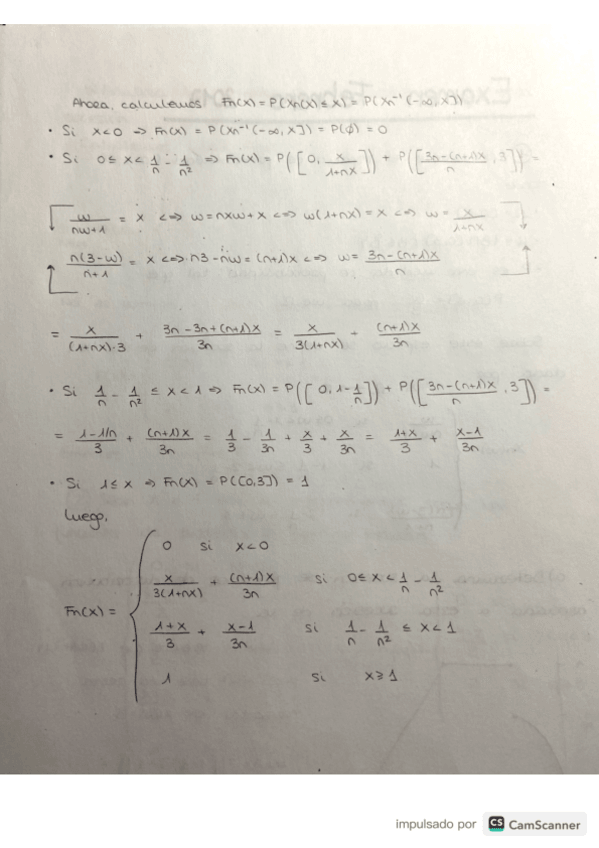 Ahora, calculemos Fn(x) = P(Xn(x) ≤ x) = P(Xn⁻¹(-∞, x])
• Si x<0 ⇒ Fn(x) = P(Xn⁻¹(-∞, x]) = P(∅) = 0
• Si 0 ≤ x < 1/n - 1/n² ⇒ Fn(x) = P([0, x/(1+nx)]) + P([(3n-(n+1)x)/n, 3]) =
w/(nw+1) = x ⇔ w = nxw + x ⇔ w(1+nx) = x ⇔ w = x/(1+nx)
n(3-w)/(n+1) = x ⇔ n3 - nw = (n+1)x ⇔ w = (3n-(n+1)x)/n
= x/((1+nx)·3) + (3n-3n+(n+1)x)/3n = x/(3(1+nx)) + (n+1)x/3n
• Si 1/n - 1/n² ≤ x < 1 ⇒ Fn(x) = P([0, 1-1/n]) + P([(3n-(n+1)x)/n, 3]) =
= (1-1/n)/3 + (n+1)x/3n = 1/3 - 1/3n + x/3 + x/3n = (1+x)/3 + (x-1)/3n
• Si 1 ≤ x ⇒ Fn(x) = P([0,3]) = 1
Luego,
Fn(x) = {
0 si x<0
x/(3(1+nx)) + (n+1)x/3n si 0 ≤ x < 1/n - 1/n²
(1+x)/3 + (x-1)/3n si 1/n - 1/n² ≤ x < 1
1 si x ≥ 1
impulsado por CS CamScanner